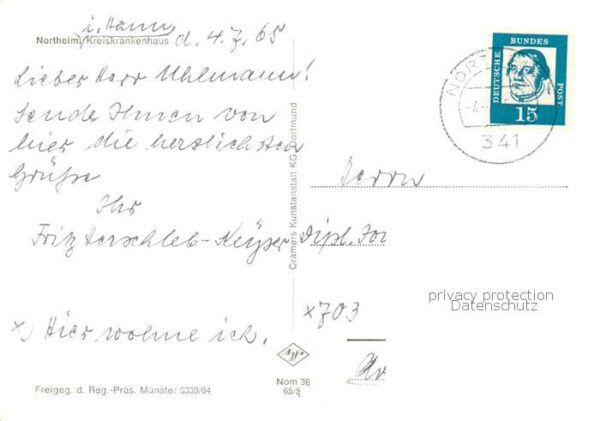 i. Hann
Northeim, Kreiskrankenhaus d. 4. 7. 65
Lieber Herr Uhlmann!
Sende Ihnen von
hier die herzlichsten
Grüße
Ihr
Fritz
x) Hier wohne ich.
Freigeg. d. Reg.-Präs. Münster 6339/64
Cramers Kunstanstalt KG, Dortmund
Nom 36
65/5
DEUTSCHE BUNDES POST
15
NORT
341
Herrn
Dipl. For
x703
privacy protection
Datenschutz